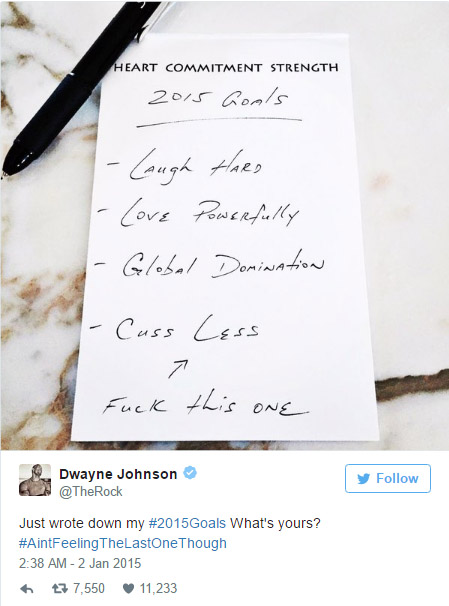 HEART COMMITMENT STRENGTH
2015 Goals
- Laugh Hard
- Love Powerfully
- Global Domination
- Cuss Less
↗
Fuck this one
Dwayne Johnson
@TheRock
Follow
Just wrote down my #2015Goals What's yours?
#AintFeelingTheLastOneThough
2:38 AM - 2 Jan 2015
7,550 11,233